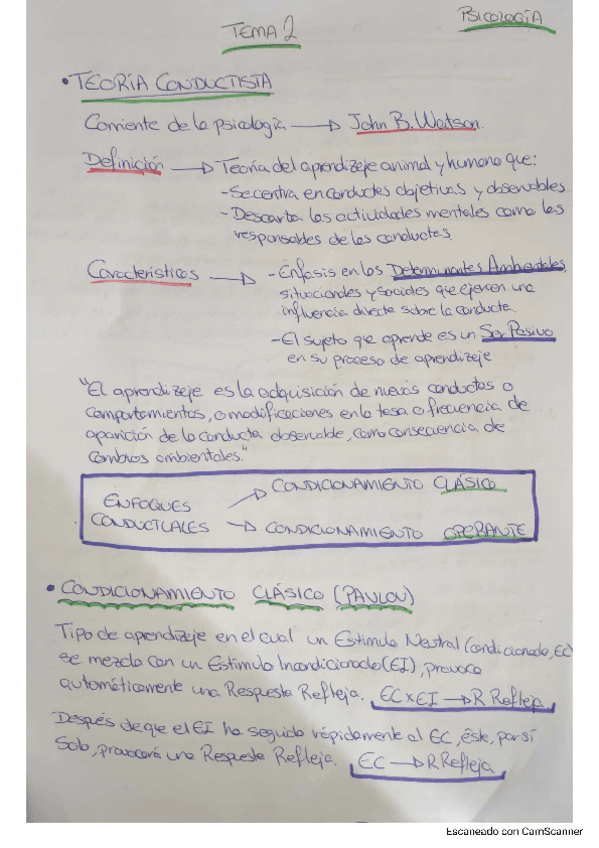 PSICOLOGÍA
TEMA 2
• TEORÍA CONDUCTISTA
Corriente de la psicología → John B. Watson.
Definición → Teoría del aprendizaje animal y humano que:
- Se centra en conductas objetivas y observables
- Descarta las actividades mentales como las
responsables de las conductas.
Características → - Énfasis en los Determinantes Ambientales,
situacionales y sociales que ejercen una
influencia directa sobre la conducta.
- El sujeto que aprende es un Ser Pasivo
en su proceso de aprendizaje
"El aprendizaje es la adquisición de nuevas conductas o
comportamientos, o modificaciones en la tasa o frecuencia de
aparición de la conducta observable, como consecuencia de
cambios ambientales."
ENFOQUES
CONDUCTUALES
→ CONDICIONAMIENTO CLÁSICO
→ CONDICIONAMIENTO OPERANTE
• CONDICIONAMIENTO CLÁSICO (PAVLOV)
Tipo de aprendizaje en el cual un Estímulo Neutral (condicionado, EC)
se mezcla con un Estímulo Incondicionado (EI), provoca
automáticamente una Respuesta Refleja. EC x EI → R Refleja
Después de que el EI ha seguido rápidamente al EC, éste, por sí
solo, provocará una Respuesta Refleja. EC → R Refleja
Escaneado con CamScanner